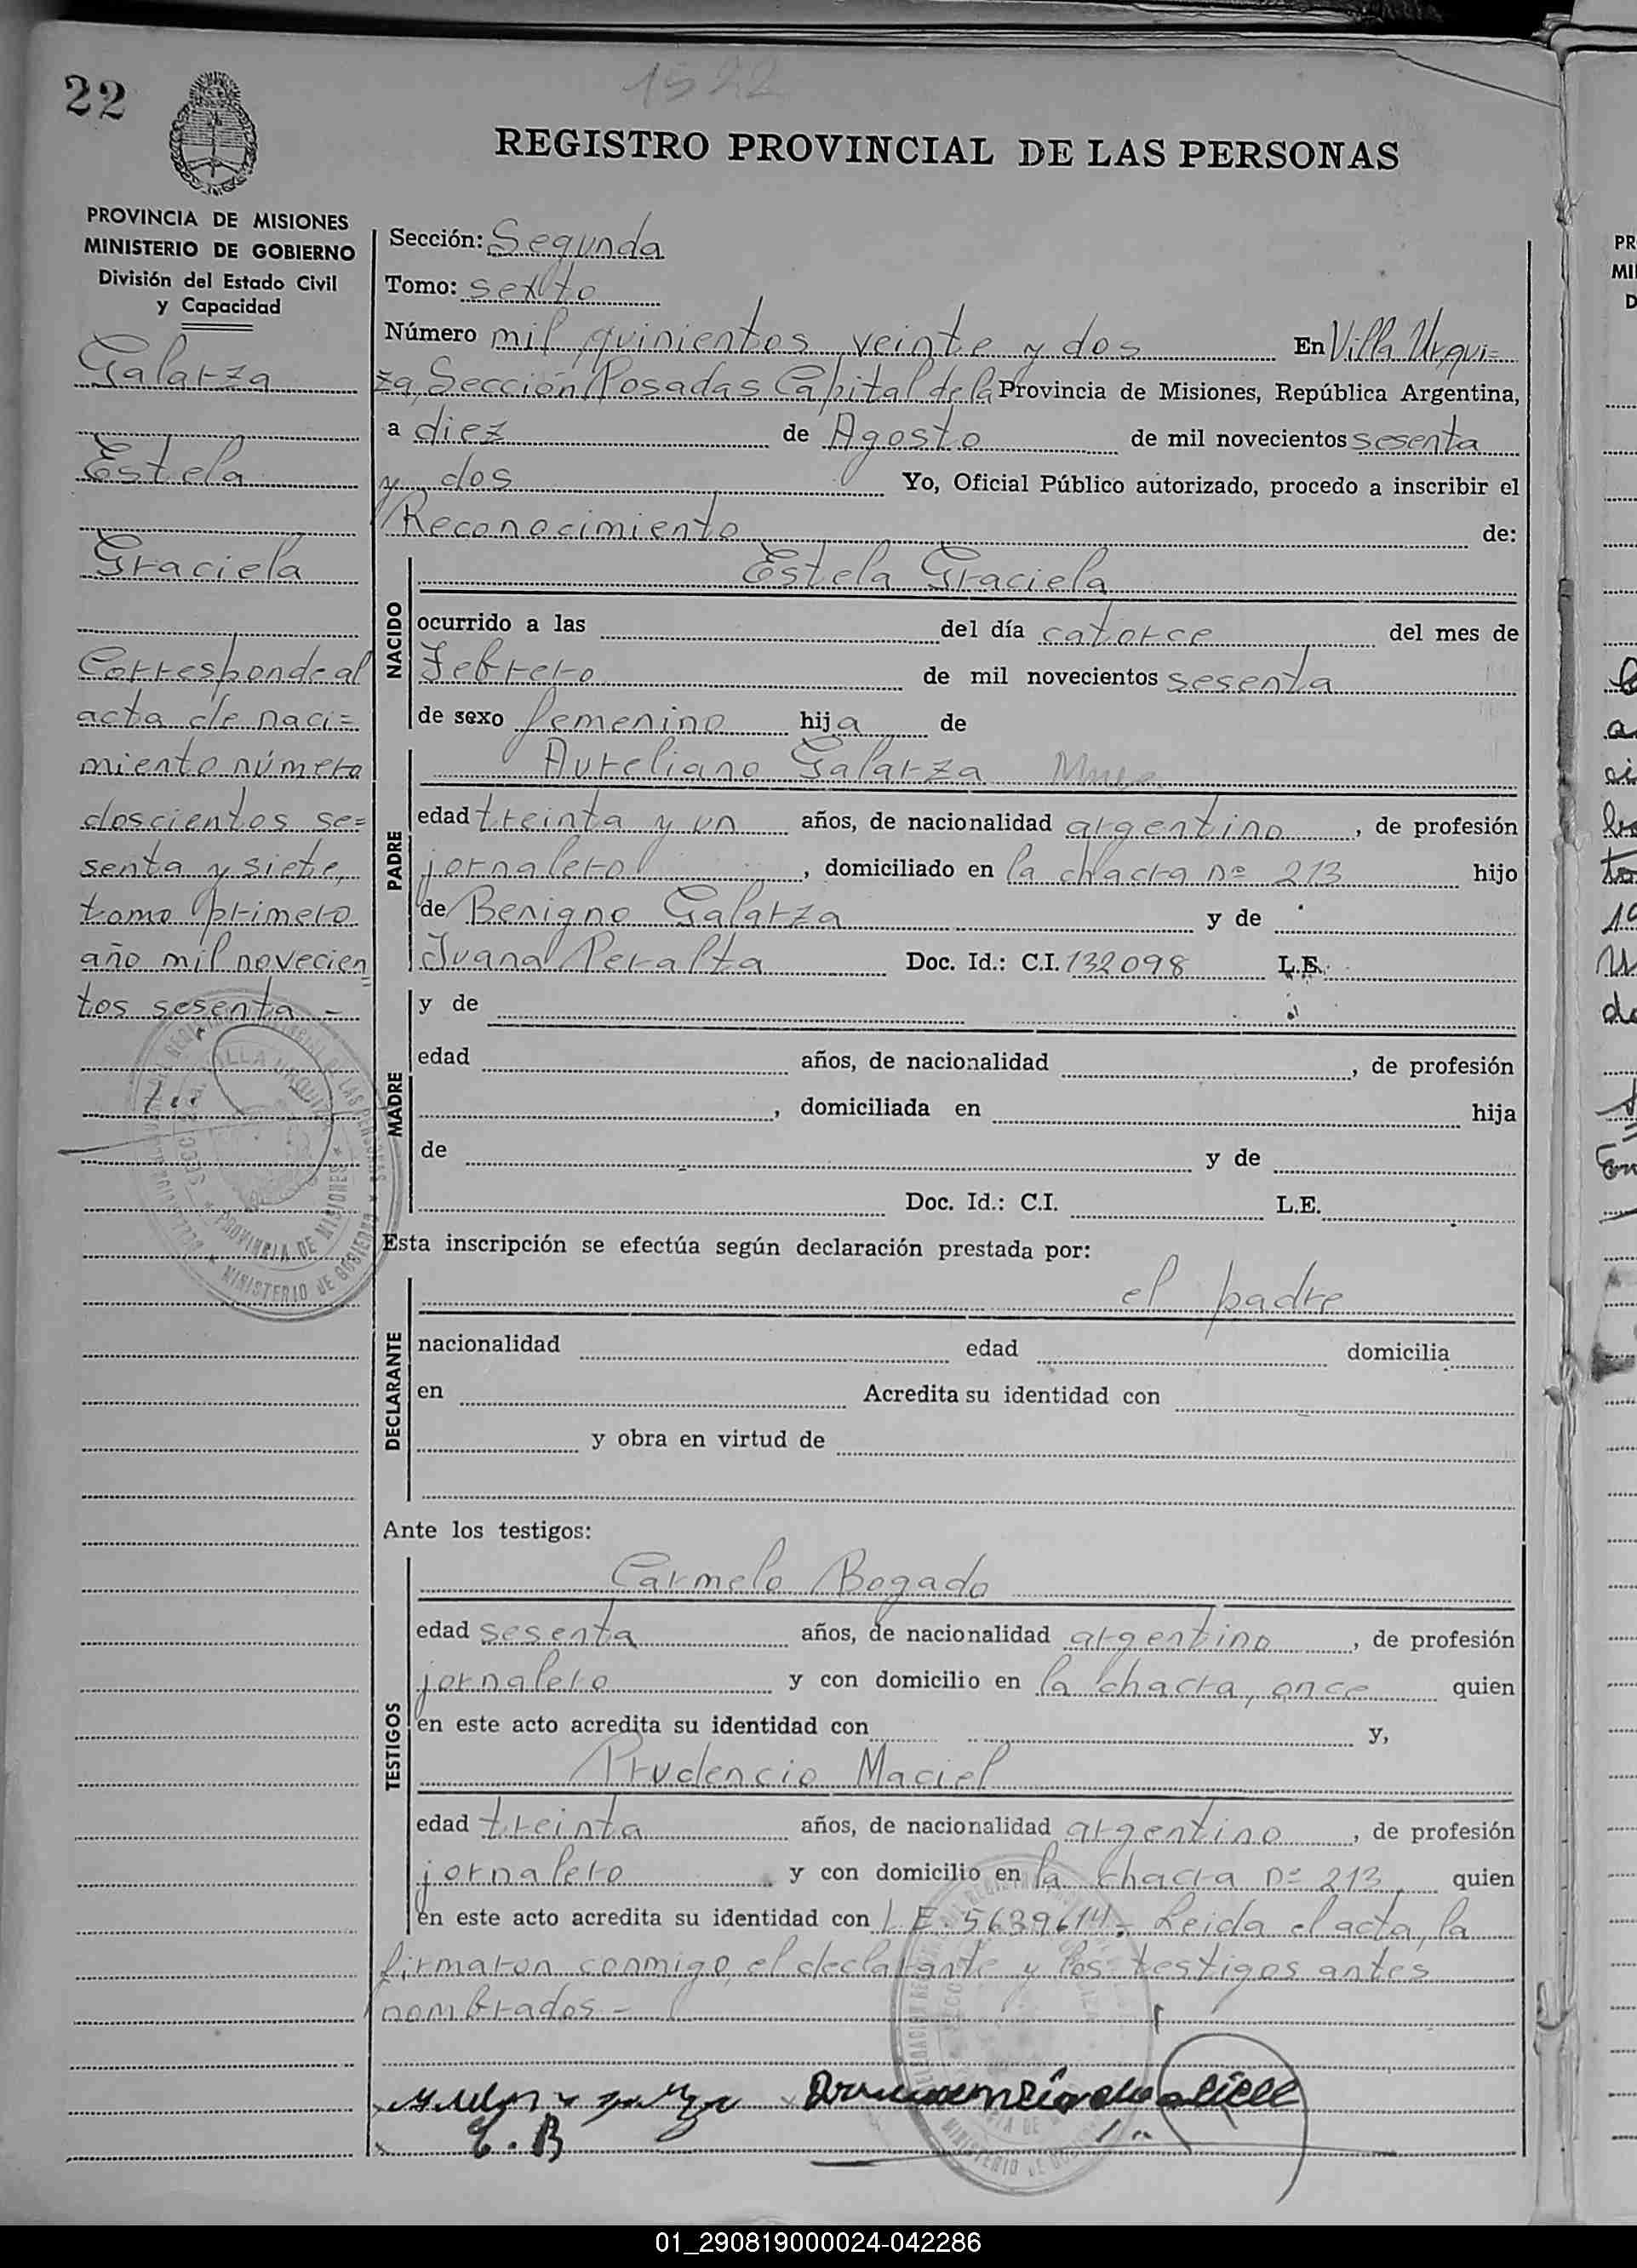 22
1522
REGISTRO PROVINCIAL DE LAS PERSONAS
PROVINCIA DE MISIONES
MINISTERIO DE GOBIERNO
División del Estado Civil
y Capacidad
Galarza
Estela
Graciela
Corresponde al
acta de naci=
miento número
doscientos se=
senta y siete,
tomo primero
año mil novecien
tos sesenta -
Sección: Segunda
Tomo: sexto
Número mil quinientos veinte y dos En Villa Urqui=
za, Sección Posadas Capital de la Provincia de Misiones, República Argentina,
a diez de Agosto de mil novecientos sesenta
y dos Yo, Oficial Público autorizado, procedo a inscribir el
Reconocimiento de:
NACIDO
Estela Graciela
ocurrido a las del día catorce del mes de
Febrero de mil novecientos sesenta
de sexo femenino hija de
PADRE
Aureliano Galarza
edad treinta y un años, de nacionalidad argentino, de profesión
jornalero, domiciliado en la chacra nº 213 hijo
de Benigno Galarza y de
Juana Peralta Doc. Id.: C.I. 132098 L.E.
MADRE
y de
edad años, de nacionalidad , de profesión
, domiciliada en hija
de y de
Doc. Id.: C.I. L.E.
Esta inscripción se efectúa según declaración prestada por:
DECLARANTE
el padre
nacionalidad edad domicilia
en Acredita su identidad con
y obra en virtud de
Ante los testigos:
TESTIGOS
Carmelo Bogado
edad sesenta años, de nacionalidad argentino, de profesión
jornalero y con domicilio en la chacra, once quien
en este acto acredita su identidad con y,
Prudencio Maciel
edad treinta años, de nacionalidad argentino, de profesión
jornalero y con domicilio en la chacra nº 213, quien
en este acto acredita su identidad con L.E. 5639614,- Leida el acta, la
firmaron conmigo, el declarante y los testigos antes
nombrados -
C. B
01_290819000024-042286